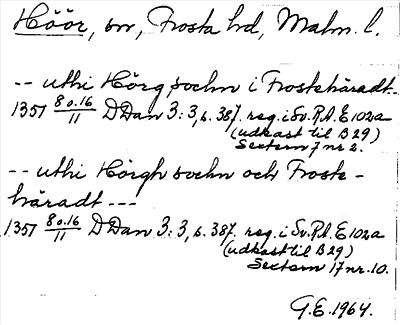 Höör, sn, Frosta hd, Malm. l.
-- uthi Hörg sochn i Frosteháradt--
1357 8 o.16/11 D Dan 3:3, s. 387. reg. i Sv. R.A. E 102a
(udkast til B 29)
Sextern 7 nr 2.
-- uthi Hörgh sochn och Froste-
háradt ---
1357 8 o.16/11 D Dan 3:3, s. 387. reg. i Sv. R.A. E 102a
(udkast til B 29)
Sextern 17 nr. 10.
G.E. 1964.